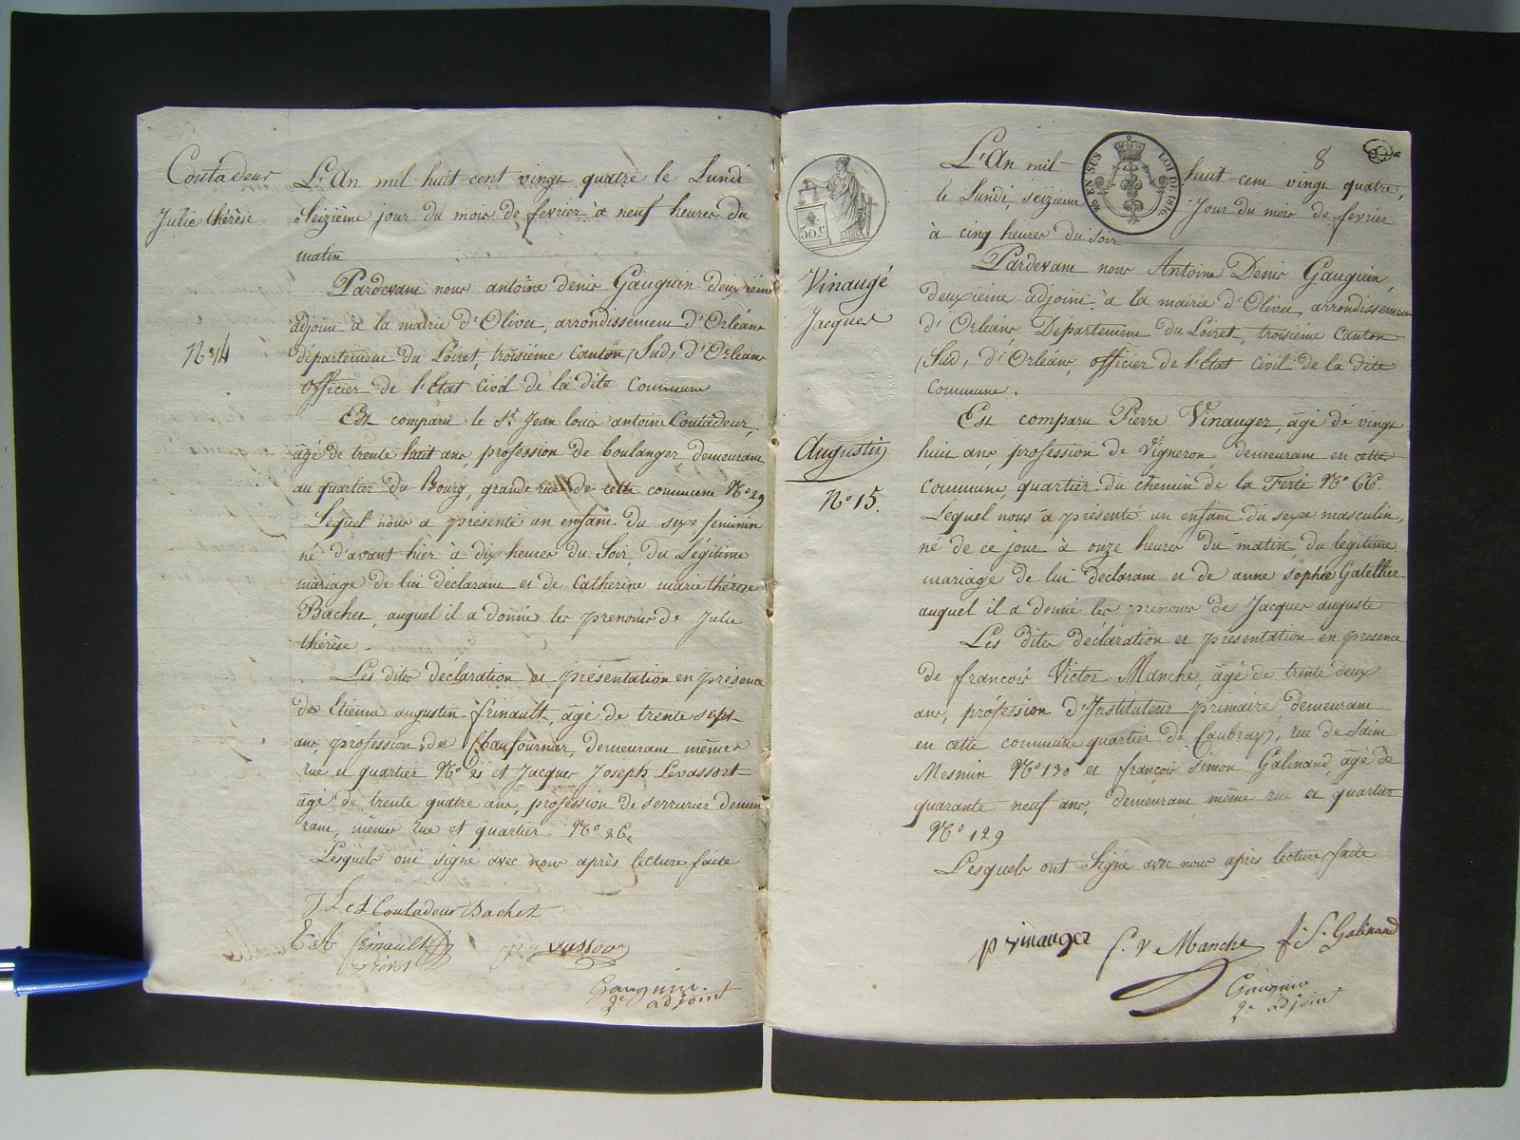 Coutadeur
Julie thérèse
N° 14
L'An mil huit cent vingt quatre le Lundi
Seizième jour du mois de fevrier à neuf heures du
matin
Pardevant nous antoine denis Gauguin deuxième
adjoint à la mairie d'Olivet, arrondissement d'Orléans
département du Loiret, troisième Canton (Sud) d'Orléans
officier de l'Etat Civil de la dite Commune
Est comparu le Sr. Jean louis antoine Coutadeur,
âgé de trente huit ans, profession de boulanger demeurant
au quartier du Bourg, grande rue de cette commune N° 29
Lequel nous a présenté un enfant du sexe feminin
né d'avant hier à dix heures du Soir, du Légitime
mariage de lui déclarant et de Catherine marie thérèse
Bachet, auquel il a donné les prenoms de Julie
thérèse.
Les dites déclaration et présentation en présence
de Etienne augustin frinault, âgé de trente sept
ans, profession de Chaufournier, demeurant même
rue et quartier N° 21 et Jacques Joseph Levassort
âgé de trente quatre ans, profession de serrurier demeu
rant, même rue et quartier N° 26.
Lesquels ont signé avec nous après lecture faite
J L A Coutadeur Bachet
E A frinault
Gauguin
2e adjoint
8
EN SUS
LOI DE 1816
Vinaugé
Jacques
Augustin
N° 15.
L'An mil huit cent vingt quatre,
le Lundi, seizième Jour du mois de fevrier
à cinq heures du soir
Pardevant nous Antoine Denis Gauguin,
deuxieme adjoint à la mairie d'Olivet, arrondissement
d'Orléans Département du Loiret, troisième Canton
(Sud) d'Orléans, officier de l'Etat Civil de la dite
Commune.
Est comparu Pierre Vinauger, âgé de vingt
huit ans, profession de Vigneron, demeurant en cette
Commune, quartier du chemin de la Ferté N° 66.
Lequel nous a présenté un enfant du sexe masculin,
né de ce jour à onze heures du matin, du legitime
mariage de lui declarant et de anne sophie Gatellier
auquel il a donné les prenoms de Jacques auguste
Les dites déclaration et présentation en presence
de francois Victor Manche, âgé de trente deux
ans, profession d'Instituteur primaire, demeurant
en cette commune quartier de Caubray, rue de Saint
Mesmin N° 130 et francois Simon Galinand, âgé de
quarante neuf ans, demeurant même rue et quartier
N° 129
Lesquels ont Signé avec nous après lecture faite
p vinauger f. v Manche f. S. Galinand
Gauguin
2e adjoint